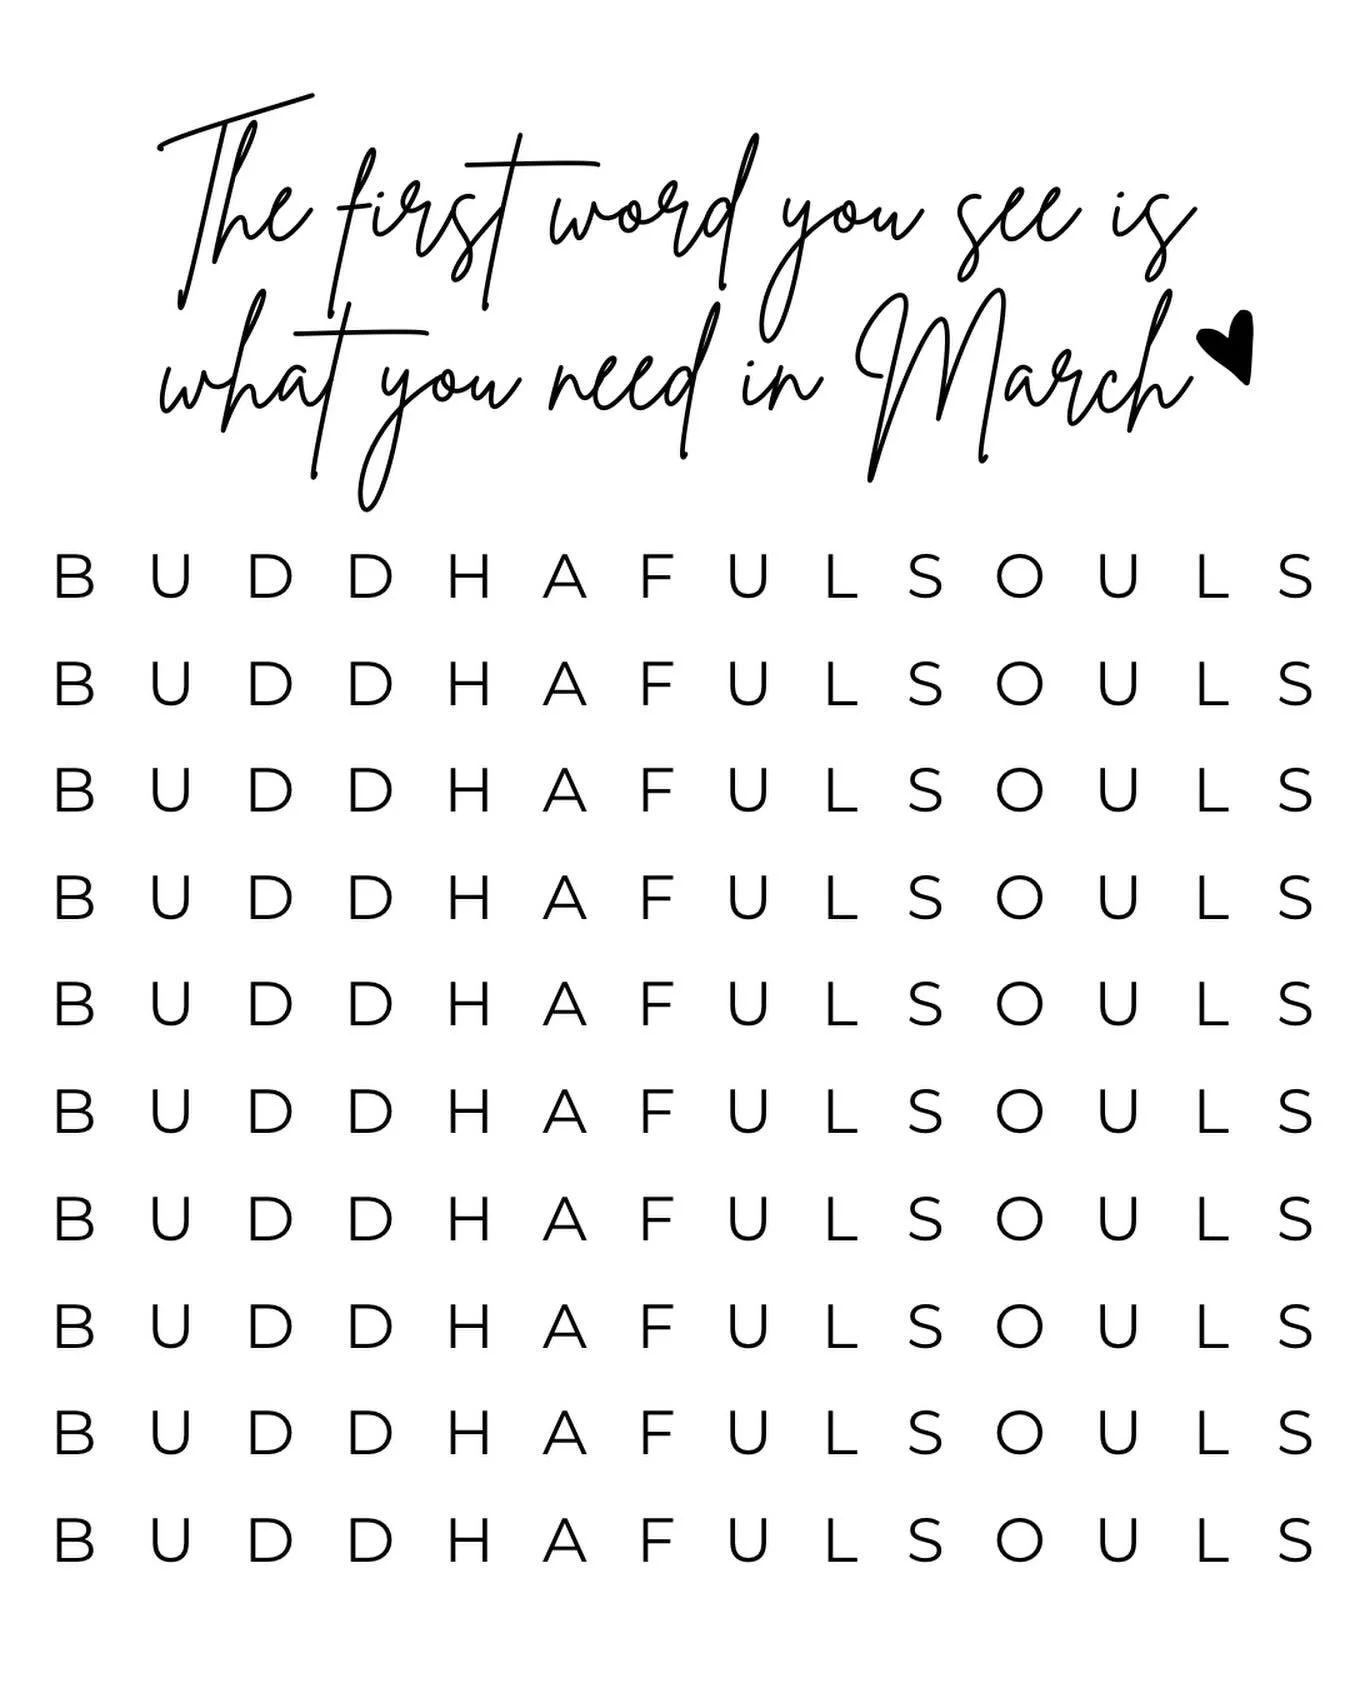 The first word you see is
what you need in March
B U D D H A F U L S O U L S
B U D D H A F U L S O U L S
B U D D H A F U L S O U L S
B U D D H A F U L S O U L S
B U D D H A F U L S O U L S
B U D D H A F U L S O U L S
B U D D H A F U L S O U L S
B U D D H A F U L S O U L S
B U D D H A F U L S O U L S
B U D D H A F U L S O U L S